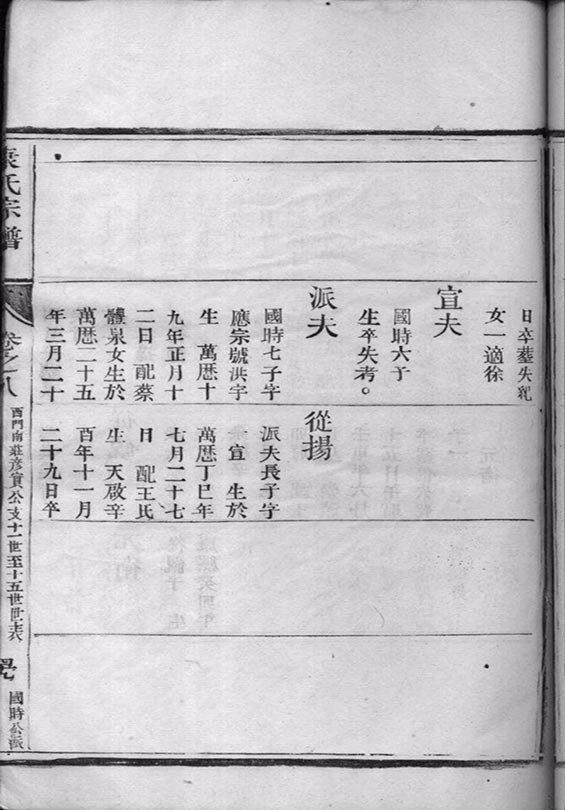 日卒葬失記
女一適徐
宣夫
國時六子
生卒失考。
派夫
國時七子字
應宗號洪宇
生 萬曆十
九年正月十
二日 配蔡
體泉女生於
萬曆二十五
年三月二十
從揚
派夫長子字
一宣 生於
萬曆丁巳年
七月二十七
日 配王氏
生 天啟辛
酉年十一月
二十九日卒
氏宗譜
卷之八
西門南莊彥實公支十一世至十五世世表
國時公派